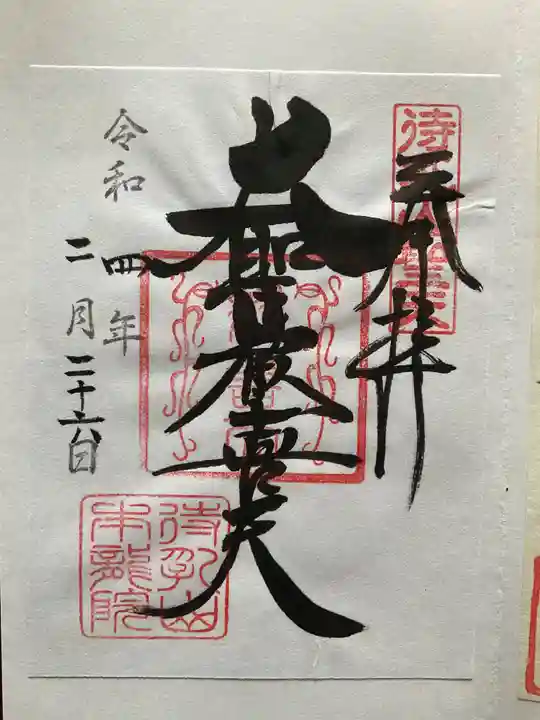 奉拝
大聖歓喜天
令和
四年
二月二十六日
待乳山
本龍院